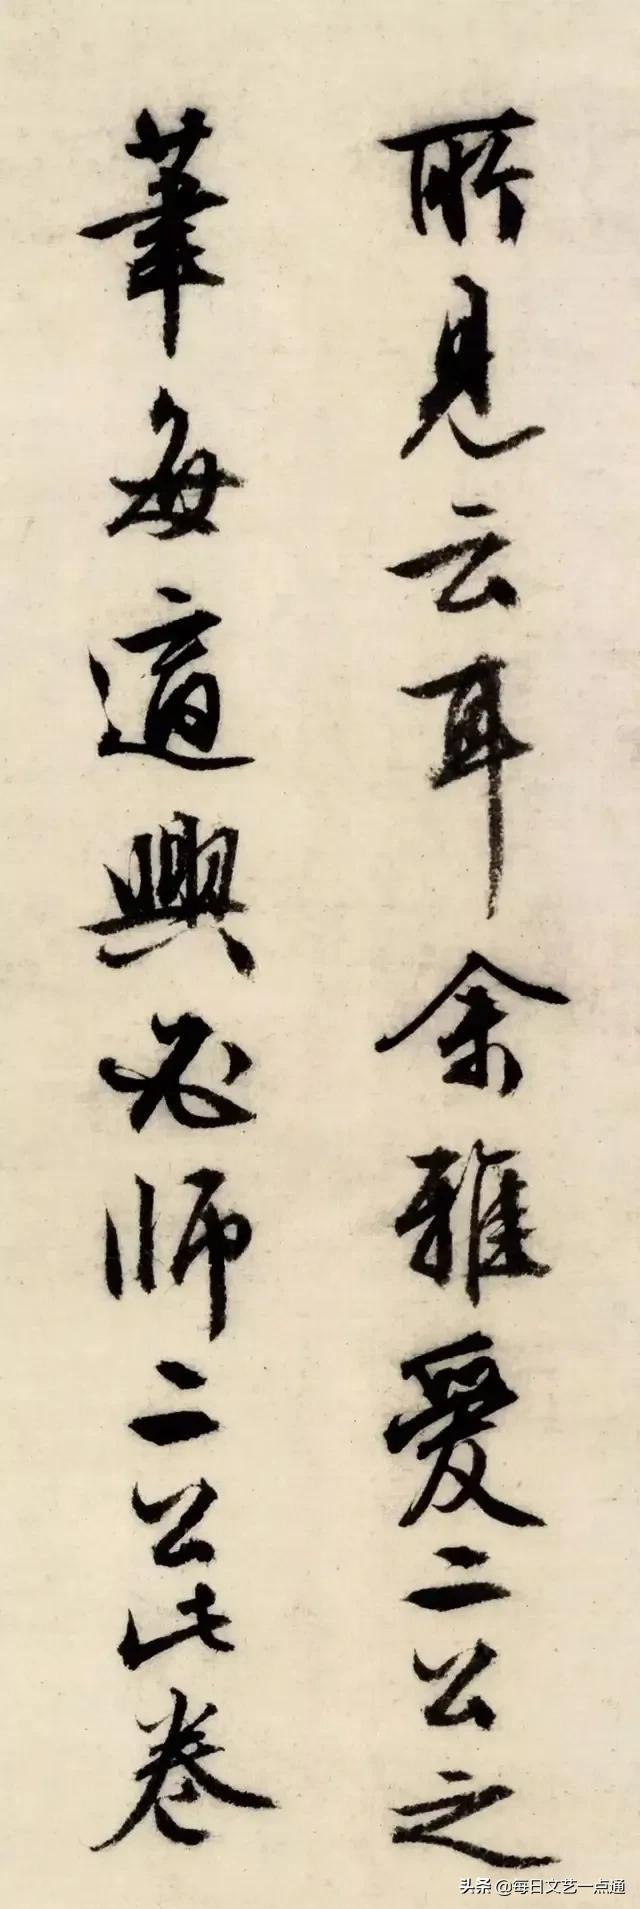 所見云耳余雅愛二公之
筆每適興必師二公此卷
头条 @每日文艺一点通